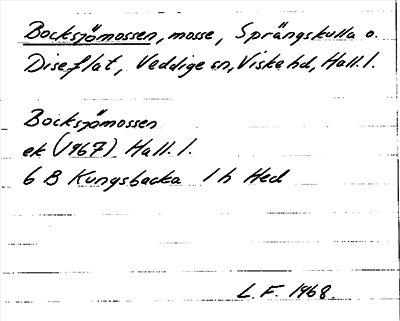 Bocksjömossen, mosse, Sprängskulla o.
Diseflat, Veddige sn, Viske hd, Hall. l.
Bocksjömossen
ek (1967) Hall. l.
6 B Kungsbacka 1 h Hed
L. F. 1968.